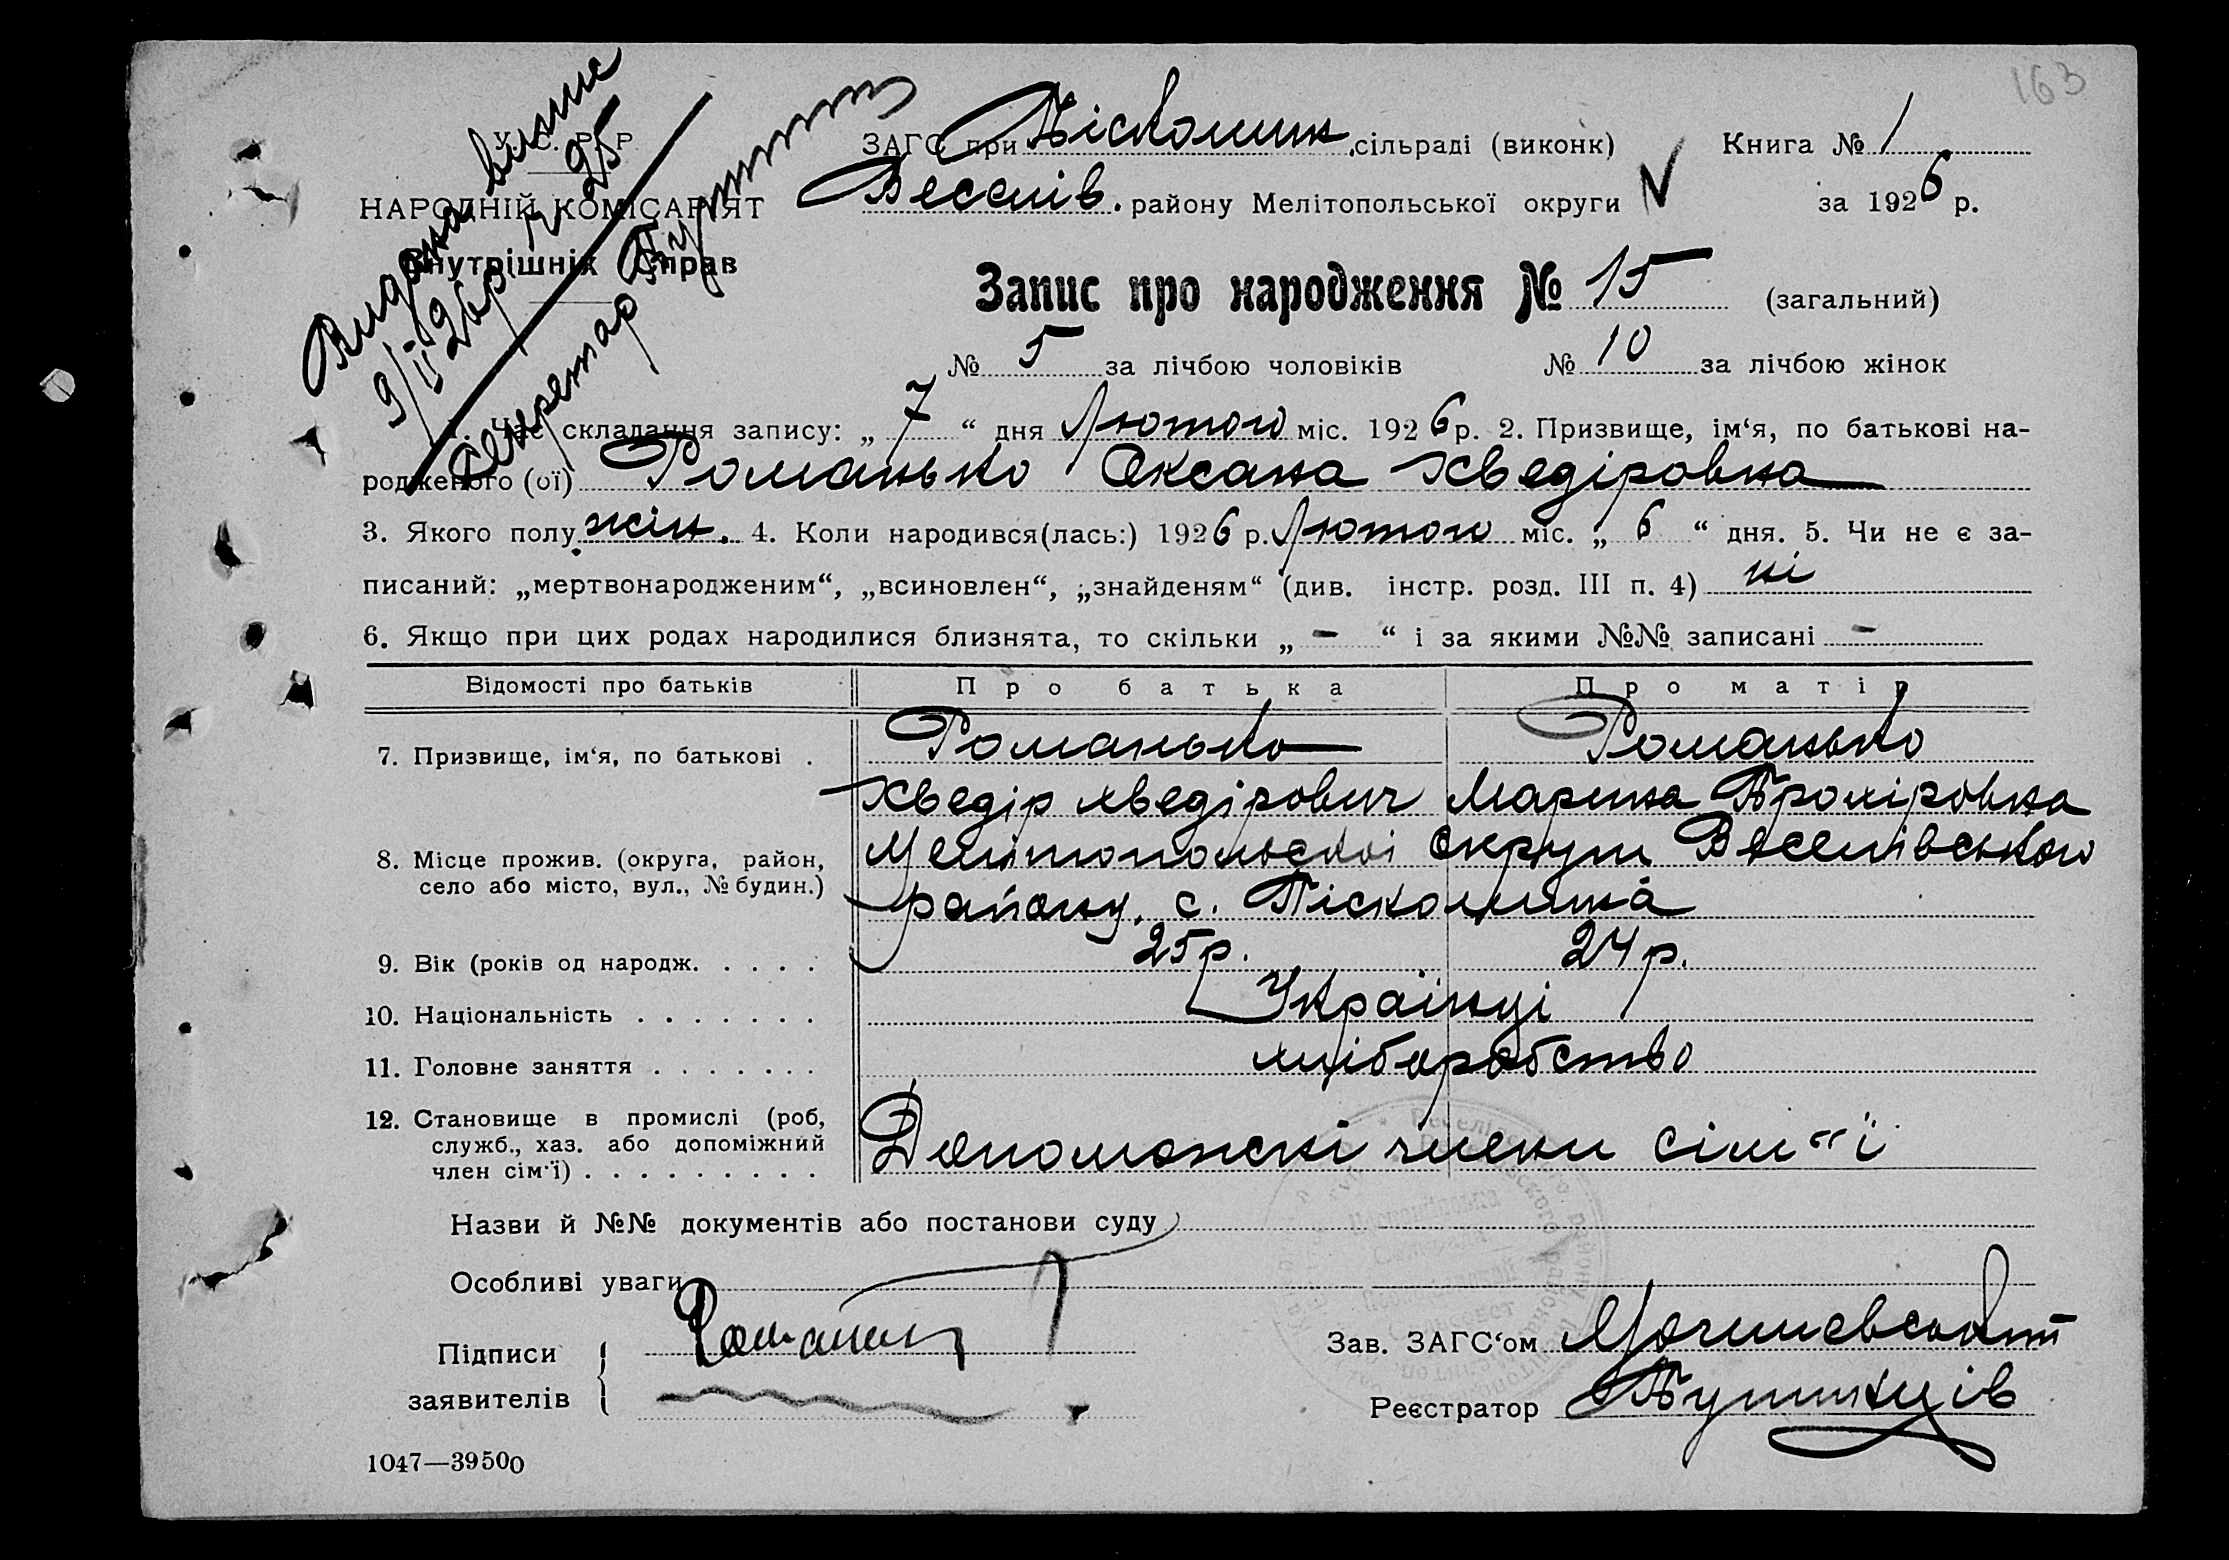 163
У. С. Р. Р.
НАРОДНІЙ КОМІСАРІЯТ
Внутрішніх Справ
Видана випис
9/II 26р № 25
Секретар
ЗАГС при Пісколин. сільраді (виконк) Книга № 1
Веселів. району Мелітопольської округи V за 1926 р.
Запис про народження № 15 (загальний)
№ 5 за лічбою чоловіків № 10 за лічбою жінок
1. Час складання запису: „ 7 “ дня Лютого міс. 1926 р. 2. Призвище, ім‘я, по батькові на-
родженого (ої) Романько Оксана Хведіровна
3. Якого полу жін. 4. Коли народився(лась:) 1926 р. Лютого міс. „ 6 “ дня. 5. Чи не є за-
писаний: „мертвонародженим“, „всиновлен“, „знайденям“ (див. інстр. розд. III п. 4) ні
6. Якщо при цих родах народилися близнята, то скільки „ - “ і за якими №№ записані -
Відомості про батьків Про батька Про матір
7. Призвище, ім‘я, по батькові . Романько Романько
Хведір Хведірович Марина Прохіровна
8. Місце прожив. (округа, район, Мелітопольскої округи Веселівського
село або місто, вул., № будин.) району, с. Пісколина
9. Вік (років од народж. . . . . 25 р. 24 р.
10. Національність . . . . . . . Українці
11. Головне заняття . . . . . . . хліборобство
12. Становище в промислі (роб,
служб., хаз. або допоміжний Допоможскі члени сім“ї
член сім‘ї) . . . . . . . . .
Назви й №№ документів або постанови суду
Особливі уваги
Підписи
заявителів
Зав. ЗАГС‘ом
Реєстратор
1047—39500